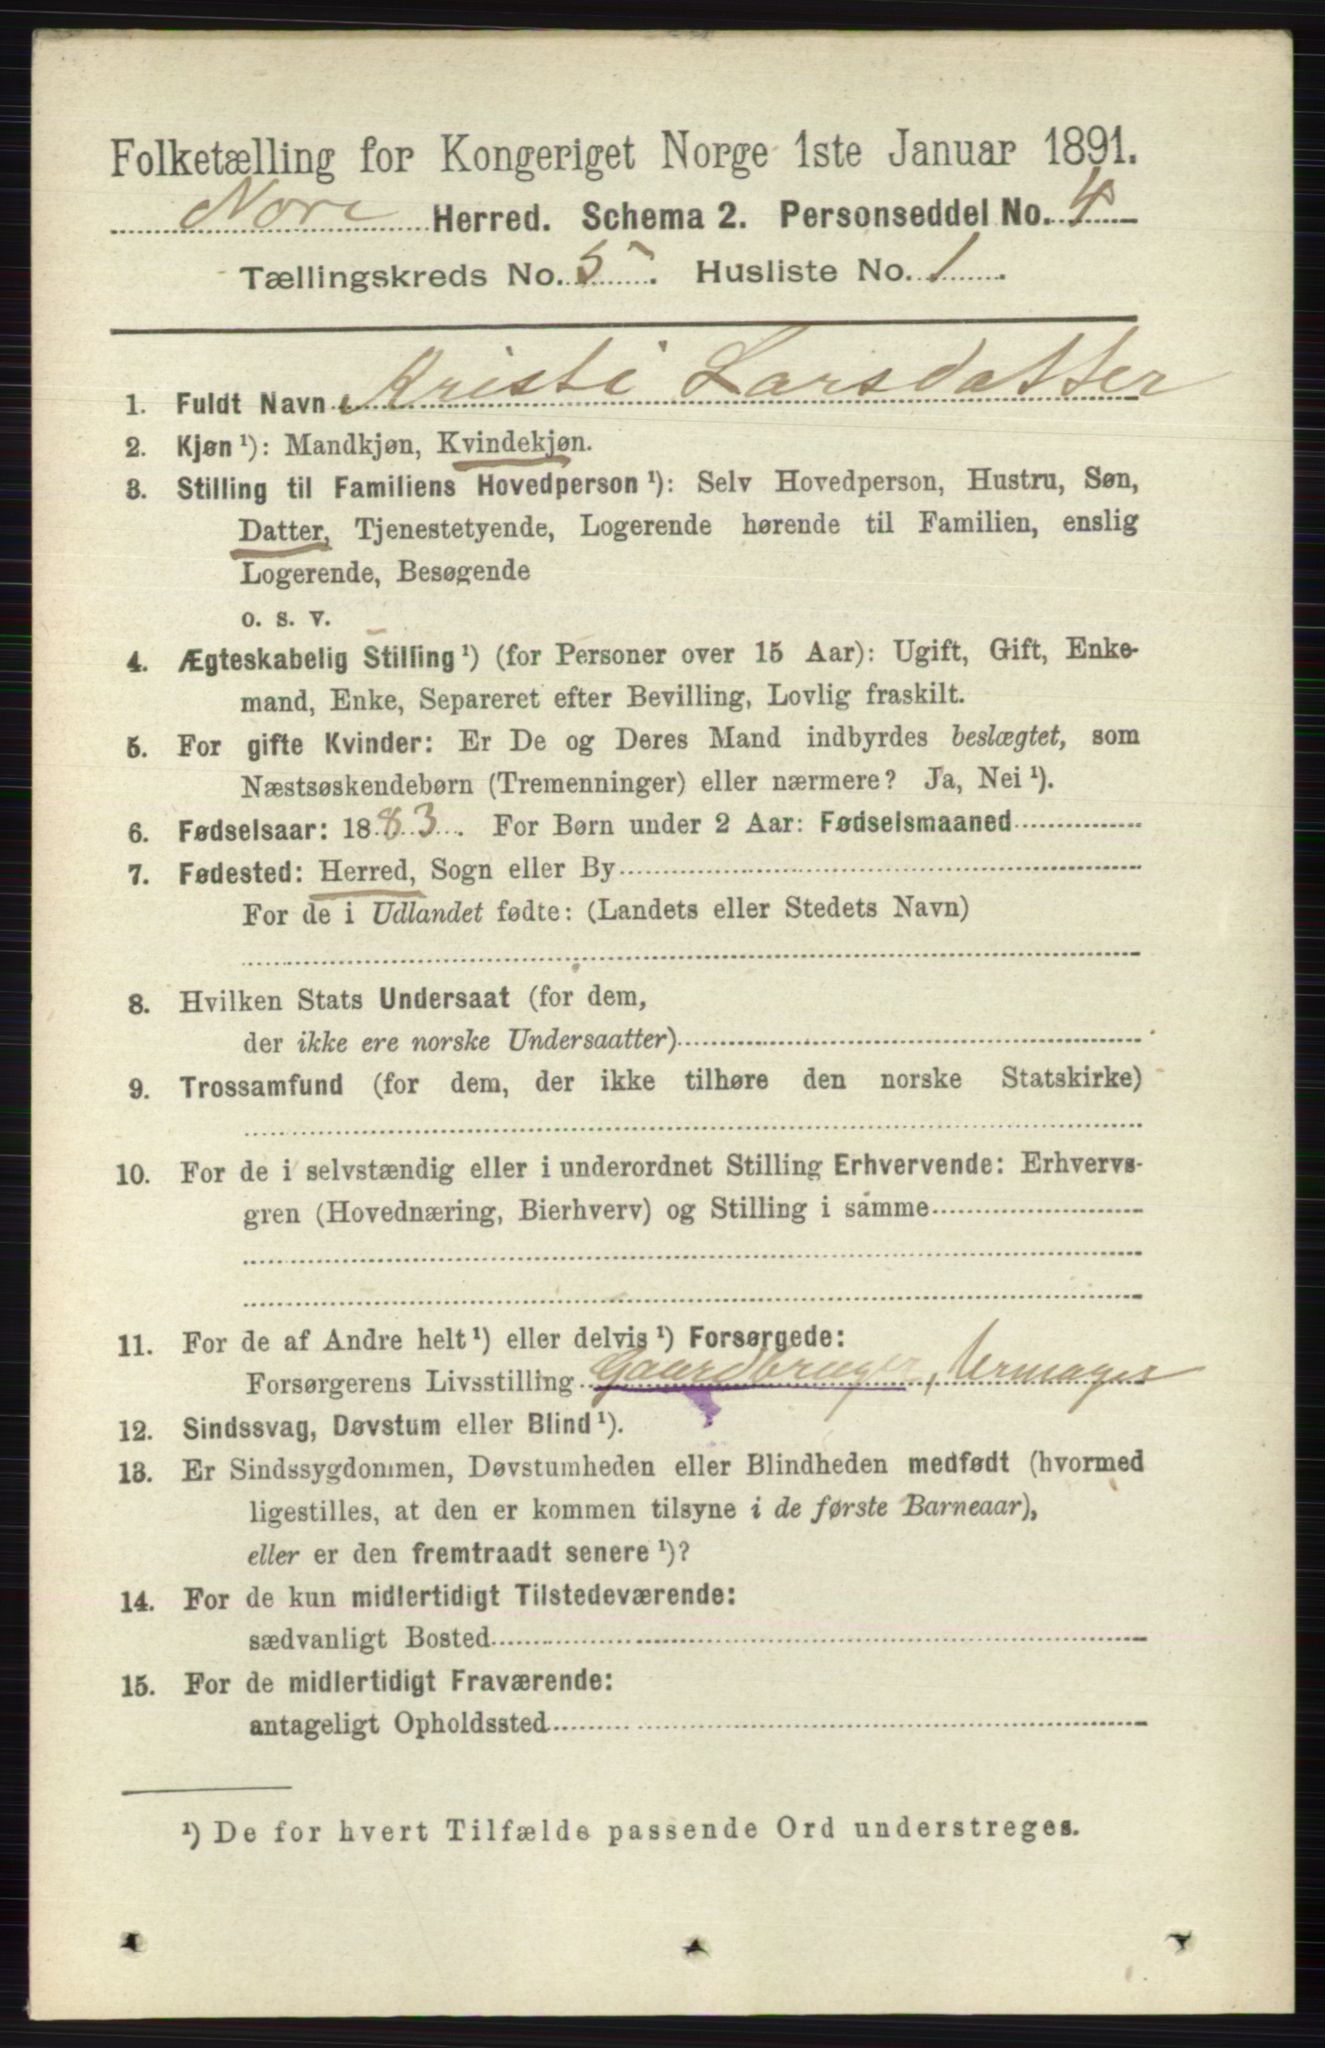 Folketælling for Kongeriget Norge 1ste Januar 1891.
Nore Herred. Schema 2. Personseddel No. 4
Tællingskreds No. 5. Husliste No. 1
1. Fuldt Navn Kristi Larsdatter
2. Kjøn ¹): Mandkjøn, Kvindekjøn.
3. Stilling til Familiens Hovedperson ¹): Selv Hovedperson, Hustru, Søn,
Datter, Tjenestetyende, Logerende hørende til Familien, enslig
Logerende, Besøgende
o. s. v.
4. Ægteskabelig Stilling ¹) (for Personer over 15 Aar): Ugift, Gift, Enke-
mand, Enke, Separeret efter Bevilling, Lovlig fraskilt.
5. For gifte Kvinder: Er De og Deres Mand indbyrdes beslægtet, som
Næstsøskendebørn (Tremenninger) eller nærmere? Ja, Nei ¹).
6. Fødselsaar: 1883. For Børn under 2 Aar: Fødselsmaaned
7. Fødested: Herred, Sogn eller By
For de i Udlandet fødte: (Landets eller Stedets Navn)
8. Hvilken Stats Undersaat (for dem,
der ikke ere norske Undersaatter)
9. Trossamfund (for dem, der ikke tilhøre den norske Statskirke)
10. For de i selvstændig eller i underordnet Stilling Erhvervende: Erhvervs-
gren (Hovednæring, Bierhverv) og Stilling i samme
11. For de af Andre helt ¹) eller delvis ¹) Forsørgede:
Forsørgerens Livsstilling Gaardbruger, Urmager
12. Sindssvag, Døvstum eller Blind ¹).
13. Er Sindssygdommen, Døvstumheden eller Blindheden medfødt (hvormed
ligestilles, at den er kommen tilsyne i de første Barneaar),
eller er den fremtraadt senere ¹)?
14. For de kun midlertidigt Tilstedeværende:
sædvanligt Bosted
15. For de midlertidigt Fraværende:
antageligt Opholdssted
¹) De for hvert Tilfælde passende Ord understreges.